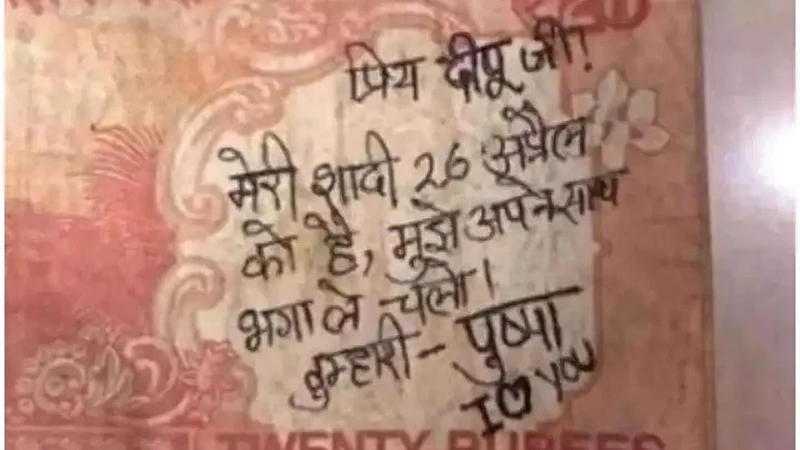 प्रिय दीपू जी!
मेरी शादी 26 अप्रैल
को है, मुझे अपने साथ
भगा ले चलो।
तुम्हारी - पुष्पा
I ♡ you
TWENTY RUPEES